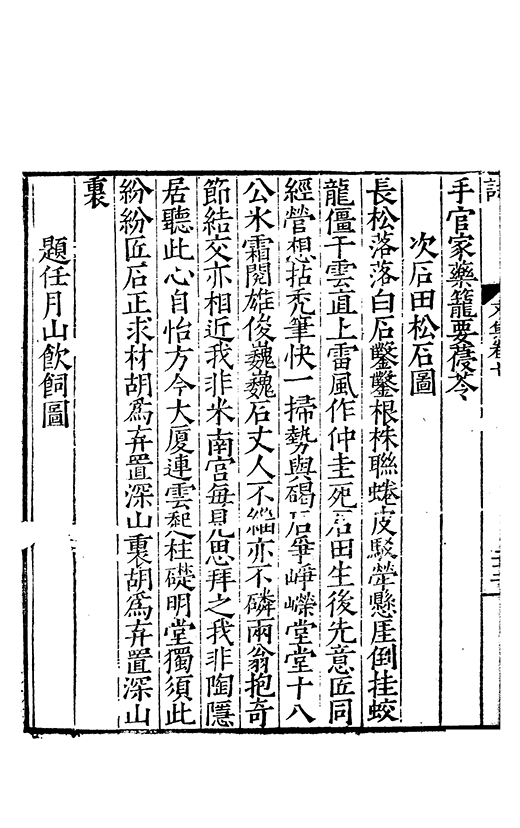 手官家藥籠要薓苓
次石田松石圖
長松落落白石鑿鑿根株聯蜷皮駁犖懸厓倒挂蛟
龍僵干雲直上雷風作仲圭死石田生後先意匠同
經營想拈禿筆快一掃勢與碣石爭崢嶸堂堂十八
公氷霜閱雄俊巍巍石丈人不緇亦不磷兩翁抱奇
節結交亦相近我非米南宮每見思拜之我非陶隱
居聽此心自怡方今大厦連雲起柱礎明堂獨須此
紛紛匠石正求材胡爲弃置深山裏胡爲弃置深山
裏
題任月山飲飼圖